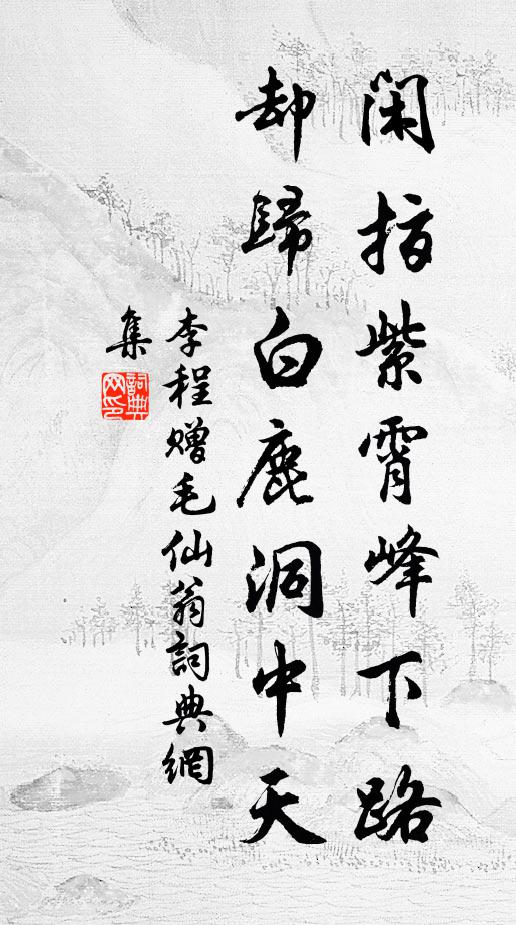 闲指紫霄峰下路
却歸白鹿洞中天
李程赠毛仙翁詞典網
集
詞典
网印